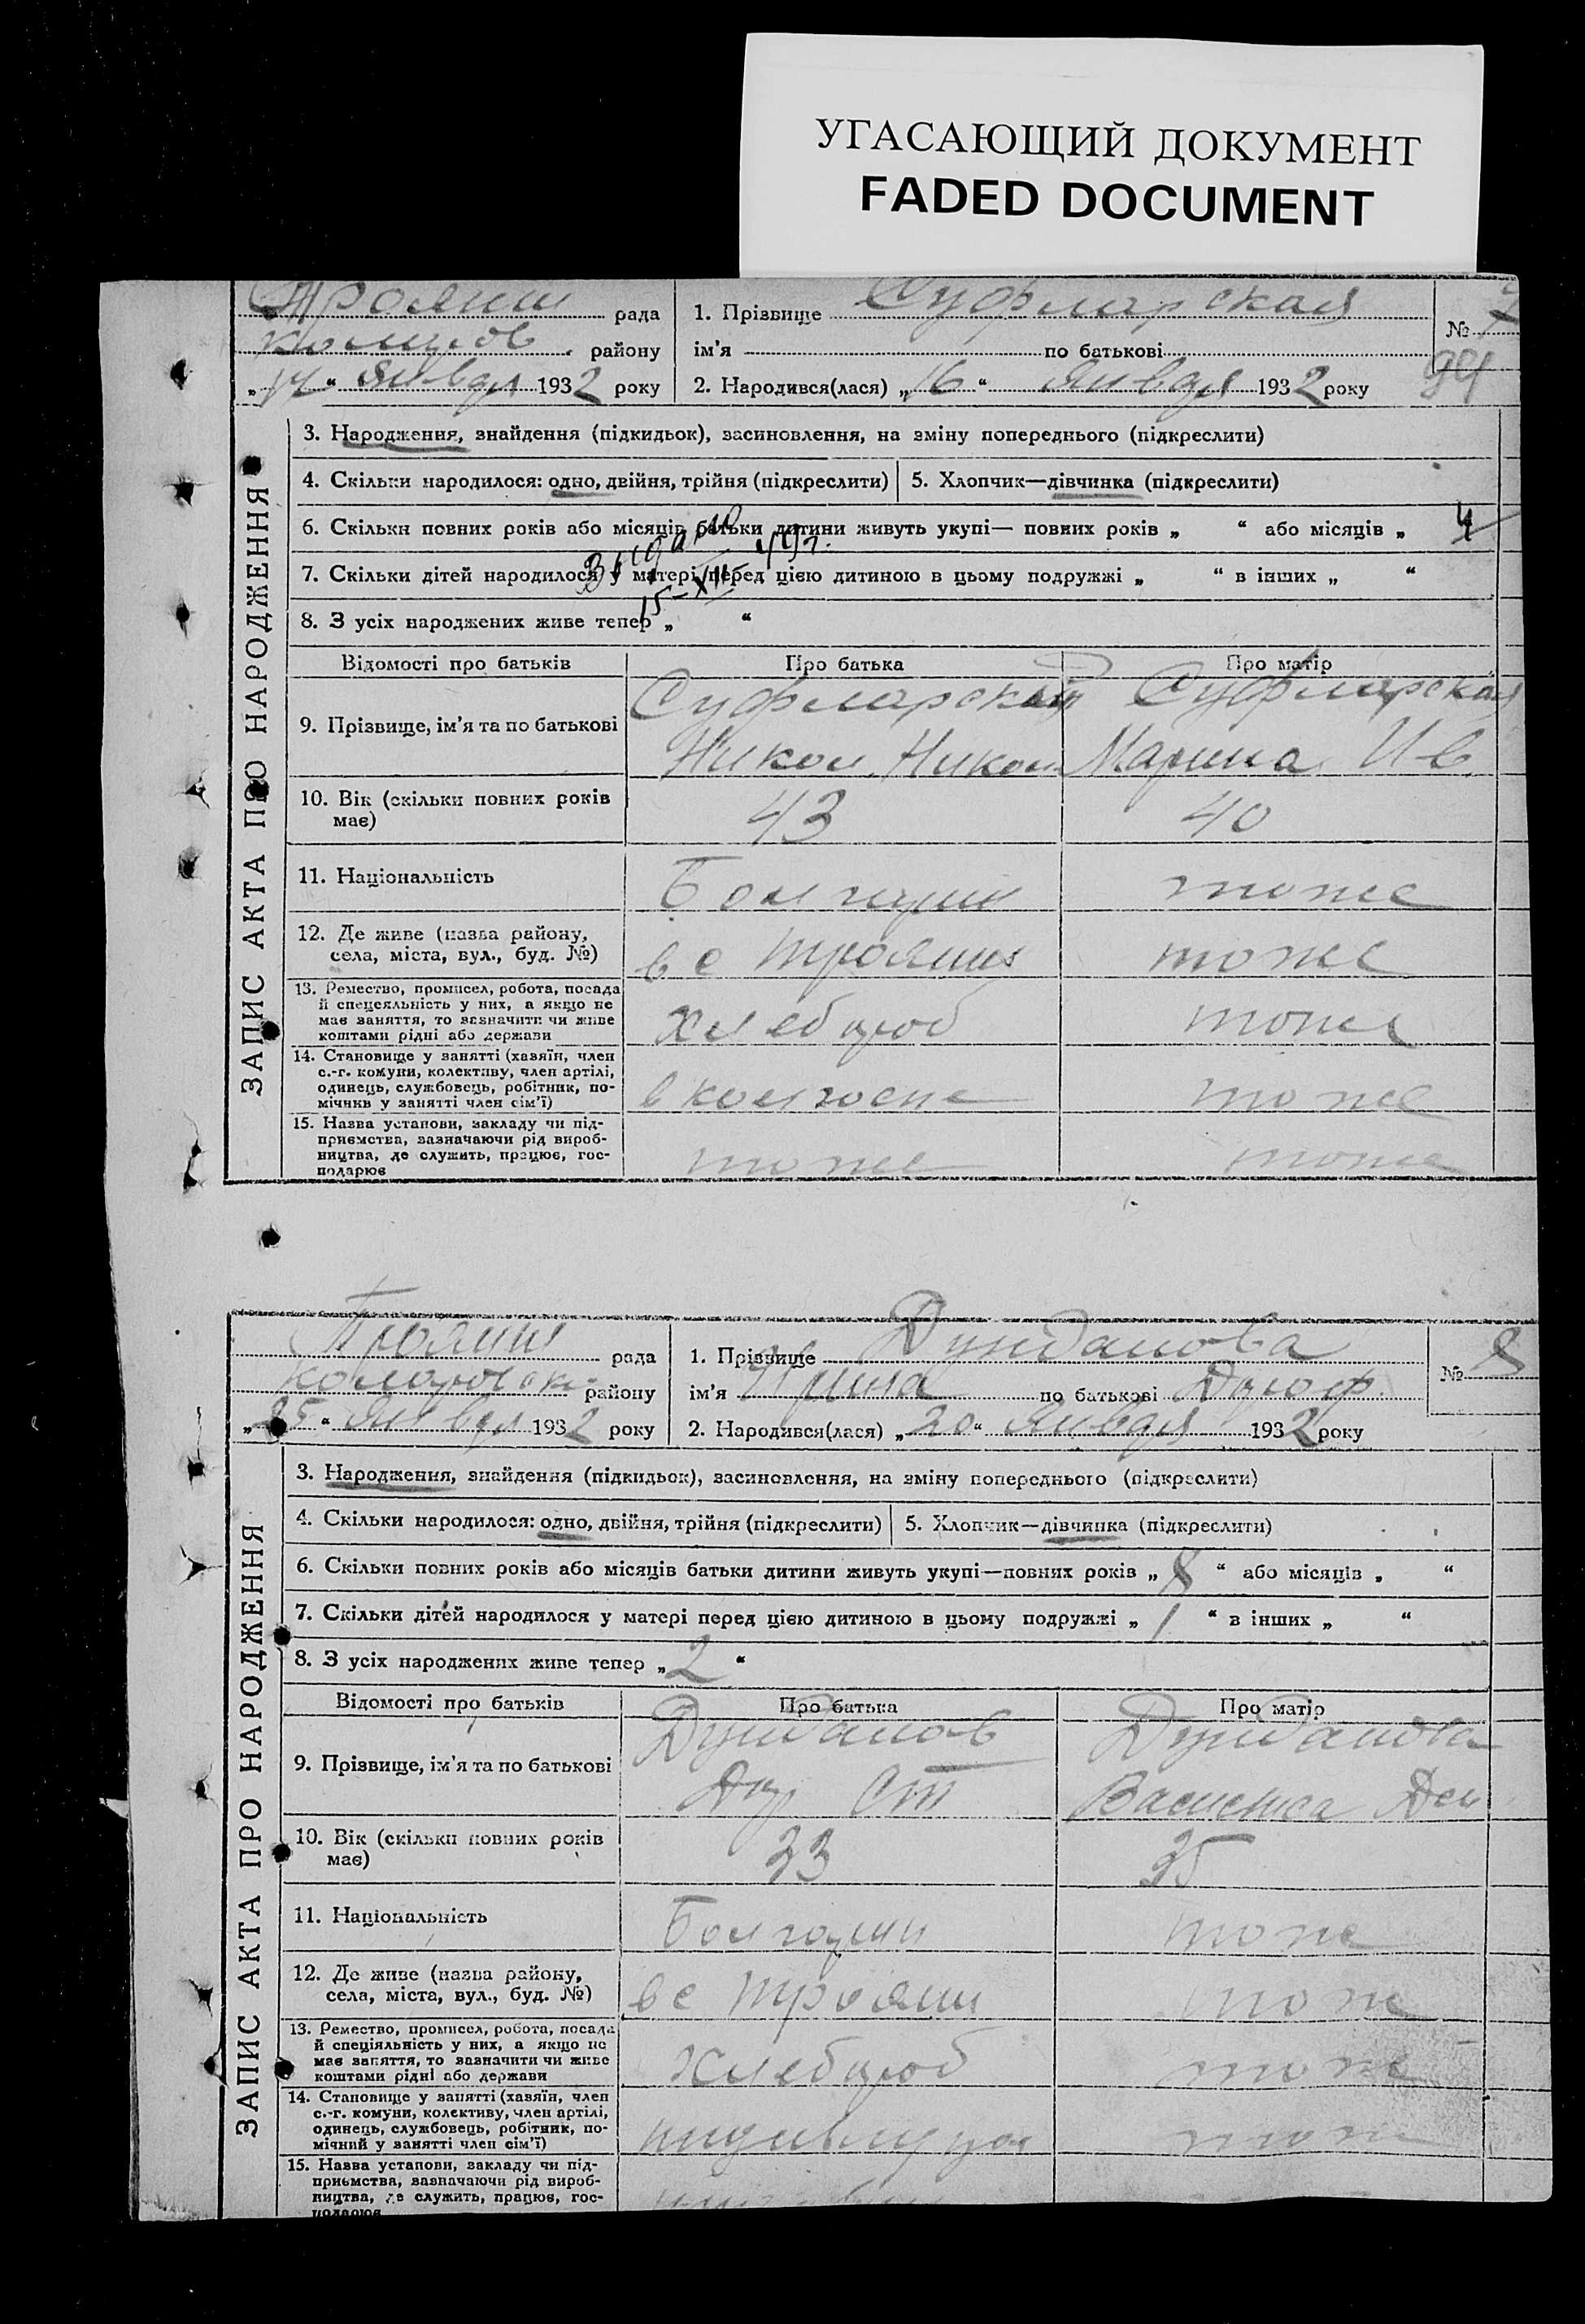 УГАСАЮЩИЙ ДОКУМЕНТ
FADED DOCUMENT
Троянш рада
району
„ “ января 1932 року
1. Прізвище Суфларская
№ 7
ім'я по батькові
2. Народився(лася) „16“ января 1932 року
ЗАПИС АКТА ПРО НАРОДЖЕННЯ
3. Народження, знайдення (підкидьок), засиновлення, на зміну попереднього (підкреслити)
4. Скільки народилося: одно, двійня, трійня (підкреслити) 5. Хлопчик—дівчинка (підкреслити)
6. Скільки повних років або місяців батьки дитини живуть укупі— повних років „ “ або місяців „ 4
7. Скільки дітей народилося у матері перед цією дитиною в цьому подружжі „ “ в інших „ “
15-XII 49г.
8. З усіх народжених живе тепер „ “
Відомості про батьків Про батька Про матір
9. Прізвище, ім'я та по батькові
Суфларский Суфларская
Никол. Никол Марина Ив
10. Вік (скільки повних років має) 43 40
11. Національність Болгарин тоже
12. Де живе (назва району, села, міста, вул., буд. №) в с Троянш тоже
13. Ремество, промисел, робота, посада
й спецсяльність у них, а якщо не
має заняття, то зазначити чи живе
коштами рідні або держави
Хлебороб тоже
14. Становище у занятті (хазяїн, член
с.-г. комуни, колективу, член артілі,
одинець, службовець, робітник, по-
мічник у занятті член сім'ї)
в колгоспе тоже
15. Назва установи, закладу чи під-
приємства, зазначаючи рід вироб-
ництва, де служить, працює, гос-
подарює
тоже тоже
Троянш рада
району
„25“ января 1932 року
1. Прізвище
№ 8
ім'я Ирина по батькові
2. Народився(лася) „20“ января 1932 року
ЗАПИС АКТА ПРО НАРОДЖЕННЯ
3. Народження, знайдення (підкидьок), засиновлення, на зміну попереднього (підкреслити)
4. Скільки народилося: одно, двійня, трійня (підкреслити) 5. Хлопчик—дівчинка (підкреслити)
6. Скільки повних років або місяців батьки дитини живуть укупі—повних років „8“ або місяців „ “
7. Скільки дітей народилося у матері перед цією дитиною в цьому подружжі „1“ в інших „ “
8. З усіх народжених живе тепер „2“
Відомості про батьків Про батька Про матір
9. Прізвище, ім'я та по батькові
Ст
10. Вік (скільки повних років має) 33 35
11. Національність Болгарин тоже
12. Де живе (назва району, села, міста, вул., буд. №) в с Троянш тоже
13. Ремество, промисел, робота, посада
й спеціяльність у них, а якщо не
має заняття, то зазначити чи живе
коштами рідні або держави
Хлебороб тоже
14. Становище у занятті (хазяїн, член
с.-г. комуни, колективу, член артілі,
одинець, службовець, робітник, по-
мічний у занятті член сім'ї)
тоже
15. Назва установи, закладу чи під-
приємства, зазначаючи рід вироб-
ництва, де служить, працює, гос-
подарює